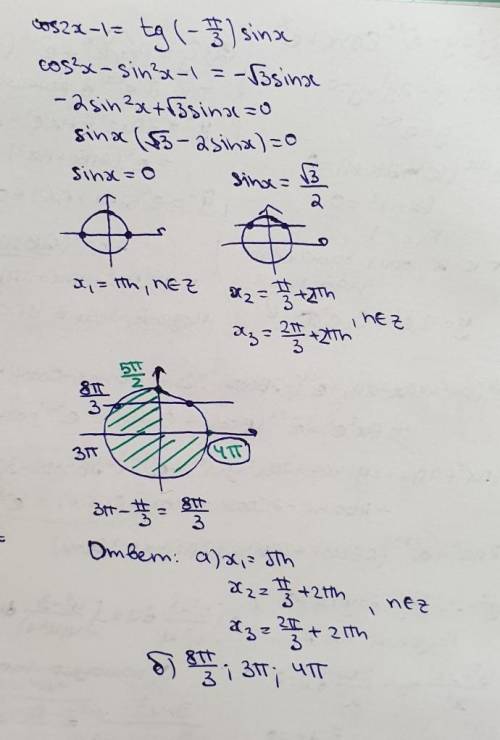 cos2x-1= tg(-π/3)sinx
cos²x-sin²x-1 = -√3sinx
-2sin²x+√3sinx=0
sinx(√3-2sinx)=0
sinx=0 sinx=√3/2
x₁=πn, n∈z x₂=π/3+2πn
x₃=2π/3+2πn, n∈z
5π/2
8π/3
3π 4π
3π-π/3=8π/3
Ответ: а) x₁=πn
x₂=π/3+2πn
x₃=2π/3+2πn, n∈z
б) 8π/3; 3π; 4π